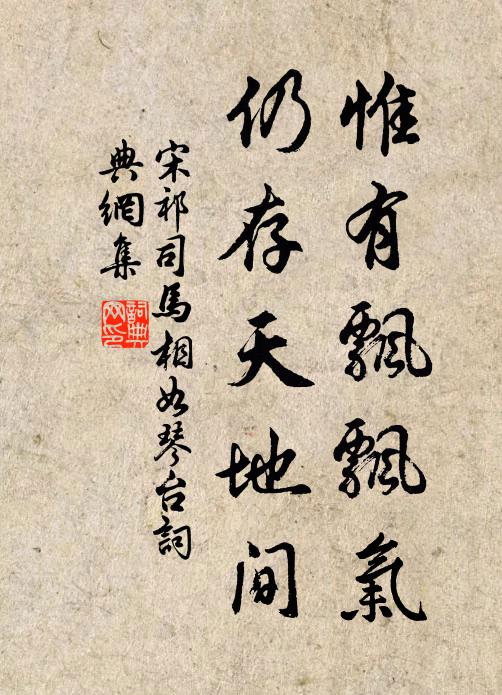 惟有飘飘氣
仍存天地间
宋祁司馬相如琴台詞
典網集
詞典
网印